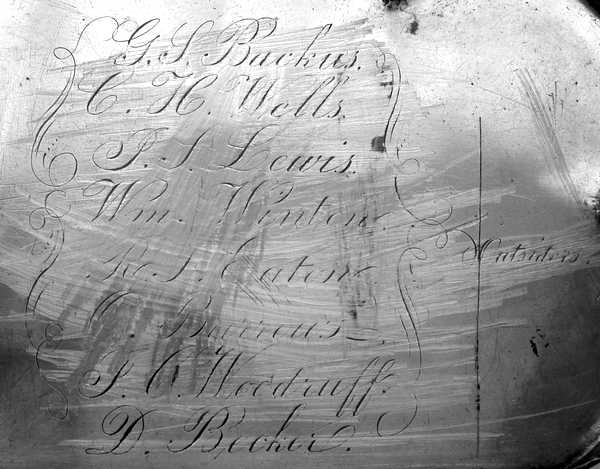 G. S. Backus.
C. H. Wells.
P. S. Lewis.
Wm. Winton.
R. S. Eaton
O. Burrows.
P. C. Woodruff.
D. Becker.
Outsiders.